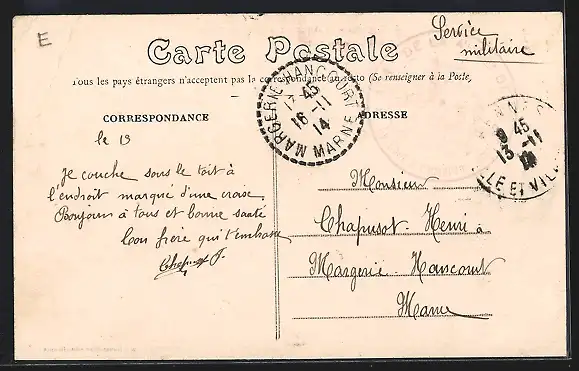 E
Service
militaire
Carte Postale
Tous les pays étrangers n'acceptent pas la correspondance au recto (Se renseigner à la Poste)
CORRESPONDANCE
ADRESSE
MARGERIE-HANCOURT
17 45
16-11
14
MARNE
RENNES
9 45
13-11
14
ILLE ET VIL
le 13
Je couche sous le toit à
l'endroit marqué d'une croix.
Bonjour à tous et bonne santé
Ton frère qui t'embrasse
Chapusot J.
Monsieur
Chapusot Henri à
Margerie-Hancourt
Marne